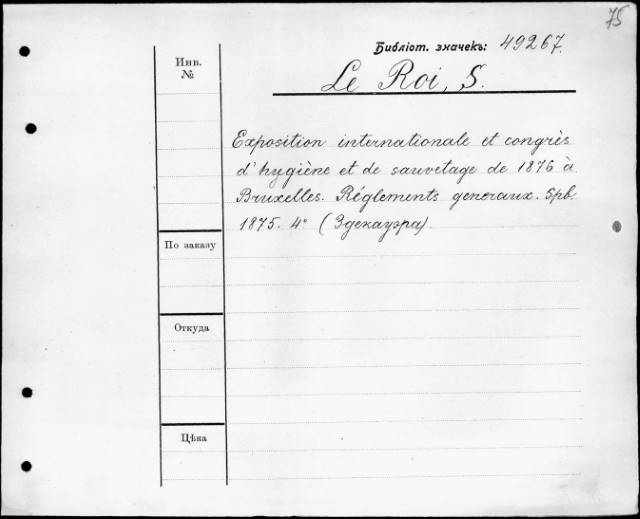 75
Библіот. значекъ: 49267.
Инв.
№
Le Roi, S.
Exposition internationale et congrès
d'hygiène et de sauvetage de 1876 à
Bruxelles. Réglements generaux. Spb.
1875. 4° (Здекауэра).
По заказу
Откуда
Цѣна